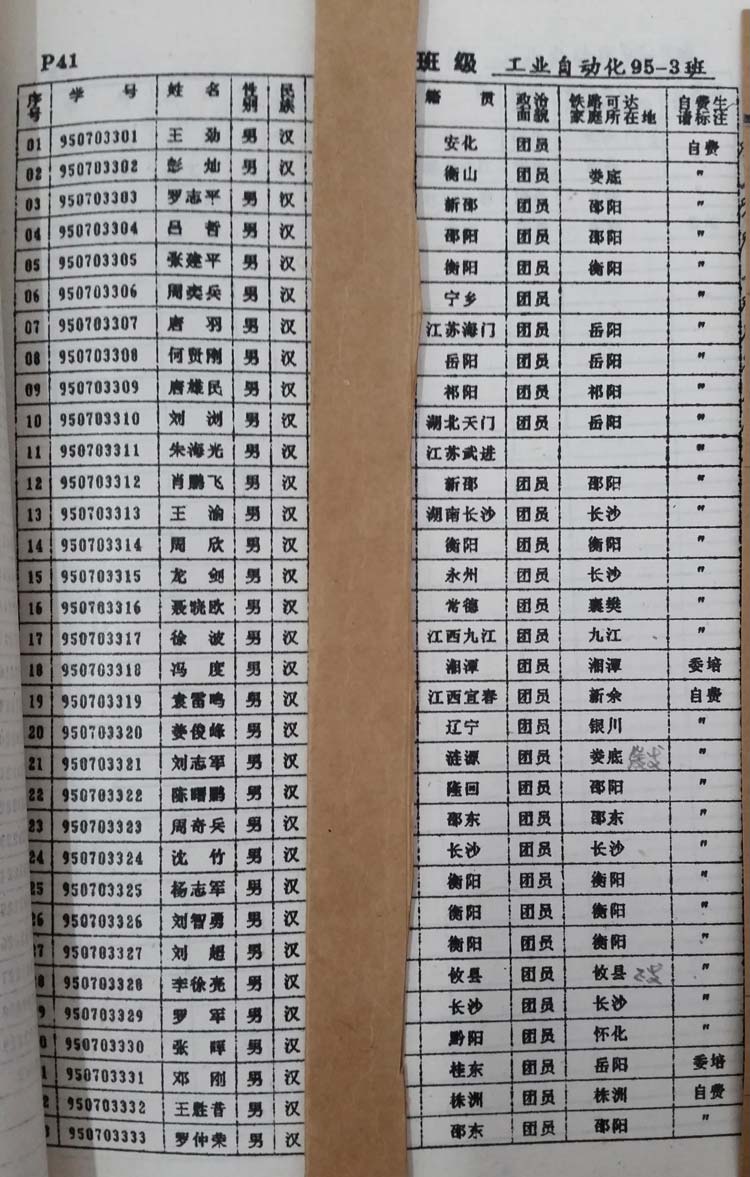 P41 班级 工业自动化95-3班
序号 学号 姓名 性别 民族 籍贯 政治面貌 铁路可达家庭所在地 自费生请标注
01 950703301 王劲 男 汉 安化 团员 自费
02 950703302 彭灿 男 汉 衡山 团员 娄底 〃
03 950703303 罗志平 男 汉 新邵 团员 邵阳 〃
04 950703304 吕哲 男 汉 邵阳 团员 邵阳 〃
05 950703305 张建平 男 汉 衡阳 团员 衡阳 〃
06 950703306 周奕兵 男 汉 宁乡 团员 〃
07 950703307 唐羽 男 汉 江苏海门 团员 岳阳 〃
08 950703308 何贤刚 男 汉 岳阳 团员 岳阳 〃
09 950703309 唐雄民 男 汉 祁阳 团员 祁阳 〃
10 950703310 刘浏 男 汉 湖北天门 团员 岳阳 〃
11 950703311 朱海光 男 汉 江苏武进 〃
12 950703312 肖鹏飞 男 汉 新邵 团员 邵阳 〃
13 950703313 王渝 男 汉 湖南长沙 团员 长沙 〃
14 950703314 周欣 男 汉 衡阳 团员 衡阳 〃
15 950703315 龙剑 男 汉 永州 团员 长沙 〃
16 950703316 聂晓欧 男 汉 常德 团员 襄樊 〃
17 950703317 徐波 男 汉 江西九江 团员 九江 〃
18 950703318 冯度 男 汉 湘潭 团员 湘潭 委培
19 950703319 袁雷鸣 男 汉 江西宜春 团员 新余 自费
20 950703320 姜俊峰 男 汉 辽宁 团员 银川 〃
21 950703321 刘志军 男 汉 涟源 团员 娄底 〃
22 950703322 陈曙鹏 男 汉 隆回 团员 邵阳 〃
23 950703323 周奇兵 男 汉 邵东 团员 邵东 〃
24 950703324 沈竹 男 汉 长沙 团员 长沙 〃
25 950703325 杨志军 男 汉 衡阳 团员 衡阳 〃
26 950703326 刘智勇 男 汉 衡阳 团员 衡阳 〃
27 950703327 刘超 男 汉 衡阳 团员 衡阳 〃
8 950703328 李徐亮 男 汉 攸县 团员 攸县 〃
9 950703329 罗军 男 汉 长沙 团员 长沙 〃
0 950703330 张晖 男 汉 黔阳 团员 怀化 〃
1 950703331 邓刚 男 汉 桂东 团员 岳阳 委培
2 950703332 王胜昔 男 汉 株洲 团员 株洲 自费
3 950703333 罗仲荣 男 汉 邵东 团员 邵阳 〃